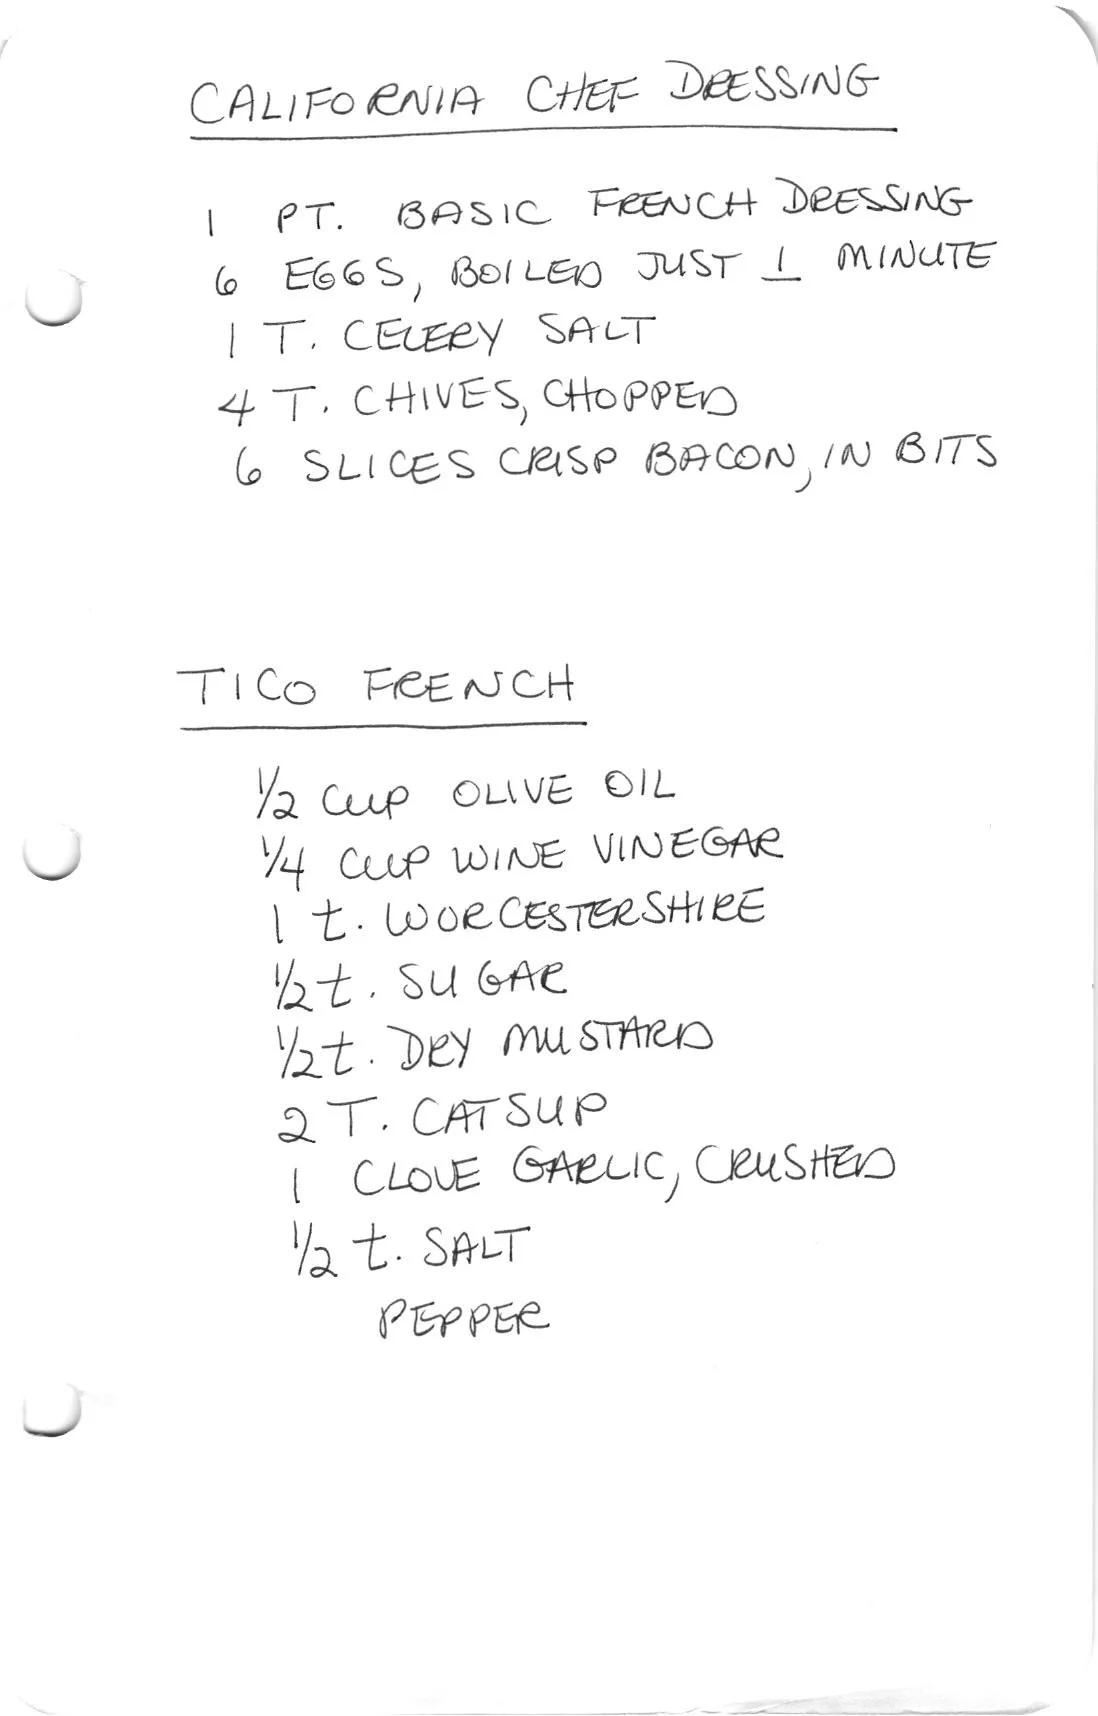 CALIFORNIA CHEF DRESSING
1 PT. BASIC FRENCH DRESSING
6 EGGS, BOILED JUST 1 MINUTE
1 T. CELERY SALT
4 T. CHIVES, CHOPPED
6 SLICES CRISP BACON, IN BITS
TICO FRENCH
1/2 CUP OLIVE OIL
1/4 CUP WINE VINEGAR
1 t. WORCESTERSHIRE
1/2 t. SUGAR
1/2 t. DRY MUSTARD
2 T. CATSUP
1 CLOVE GARLIC, CRUSHED
1/2 t. SALT
PEPPER